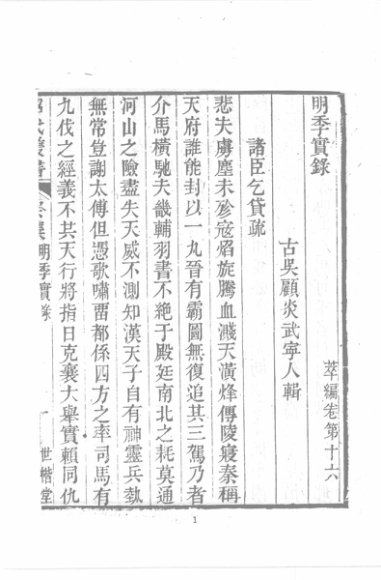 明季實錄
萃編卷第十六
古吳顧炎武寧人輯
諸臣乞貸疏
悲夫虜塵未殄寇焰旋騰血濺天潢烽傳陵寢秦稱
天府誰能封以一九晉有霸圖無復追其三駕乃者
介馬橫馳夫畿輔羽書不絕于殿廷南北之耗莫通
河山之險盡失天威不測知漢天子自有神靈兵執
無常豈謝太傅但憑歌嘯畱都係四方之率司馬有
九伐之經義不共天行將指日克襄大舉實賴同仇
昭代叢書
明季實錄
一
世楷堂
1